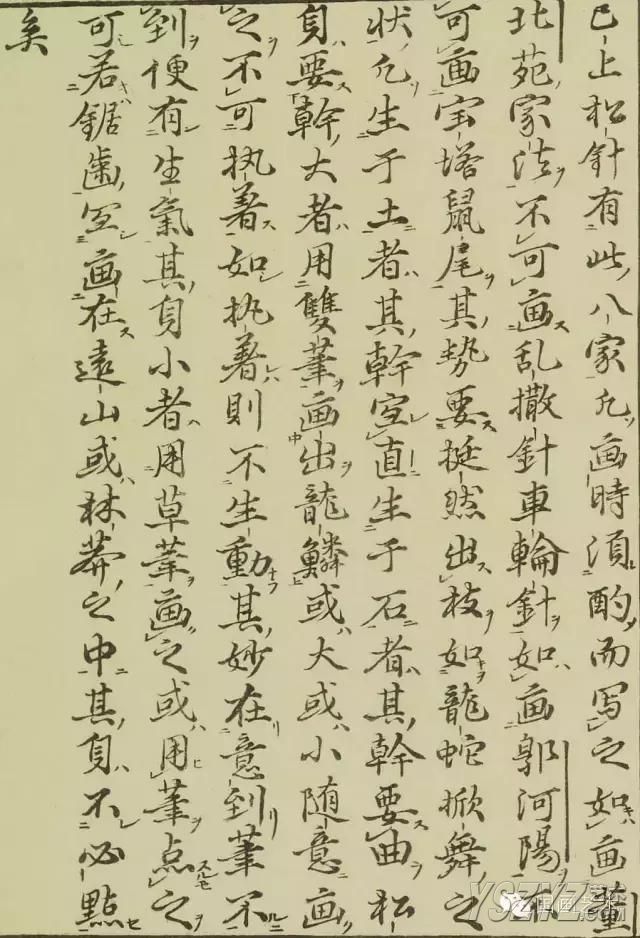 已上松針有此八家凡画時須酌而写之如画董
北苑家法不可画乱撒針車輪針如画郭河陽不
可画宝塔鼠尾其势要挺然出枝如龍蛇掀舞之
状凡生于土者其幹宜直生于石者其幹要曲松
身要幹大者用雙筆画出龍鱗或大或小随意画
之不可执着如执着則不生動其妙在意到筆不
到便有生氣其身小者用草筆画之或用筆点之
可若鋸齒宜画在遠山或林莽之中其身不必點
矣